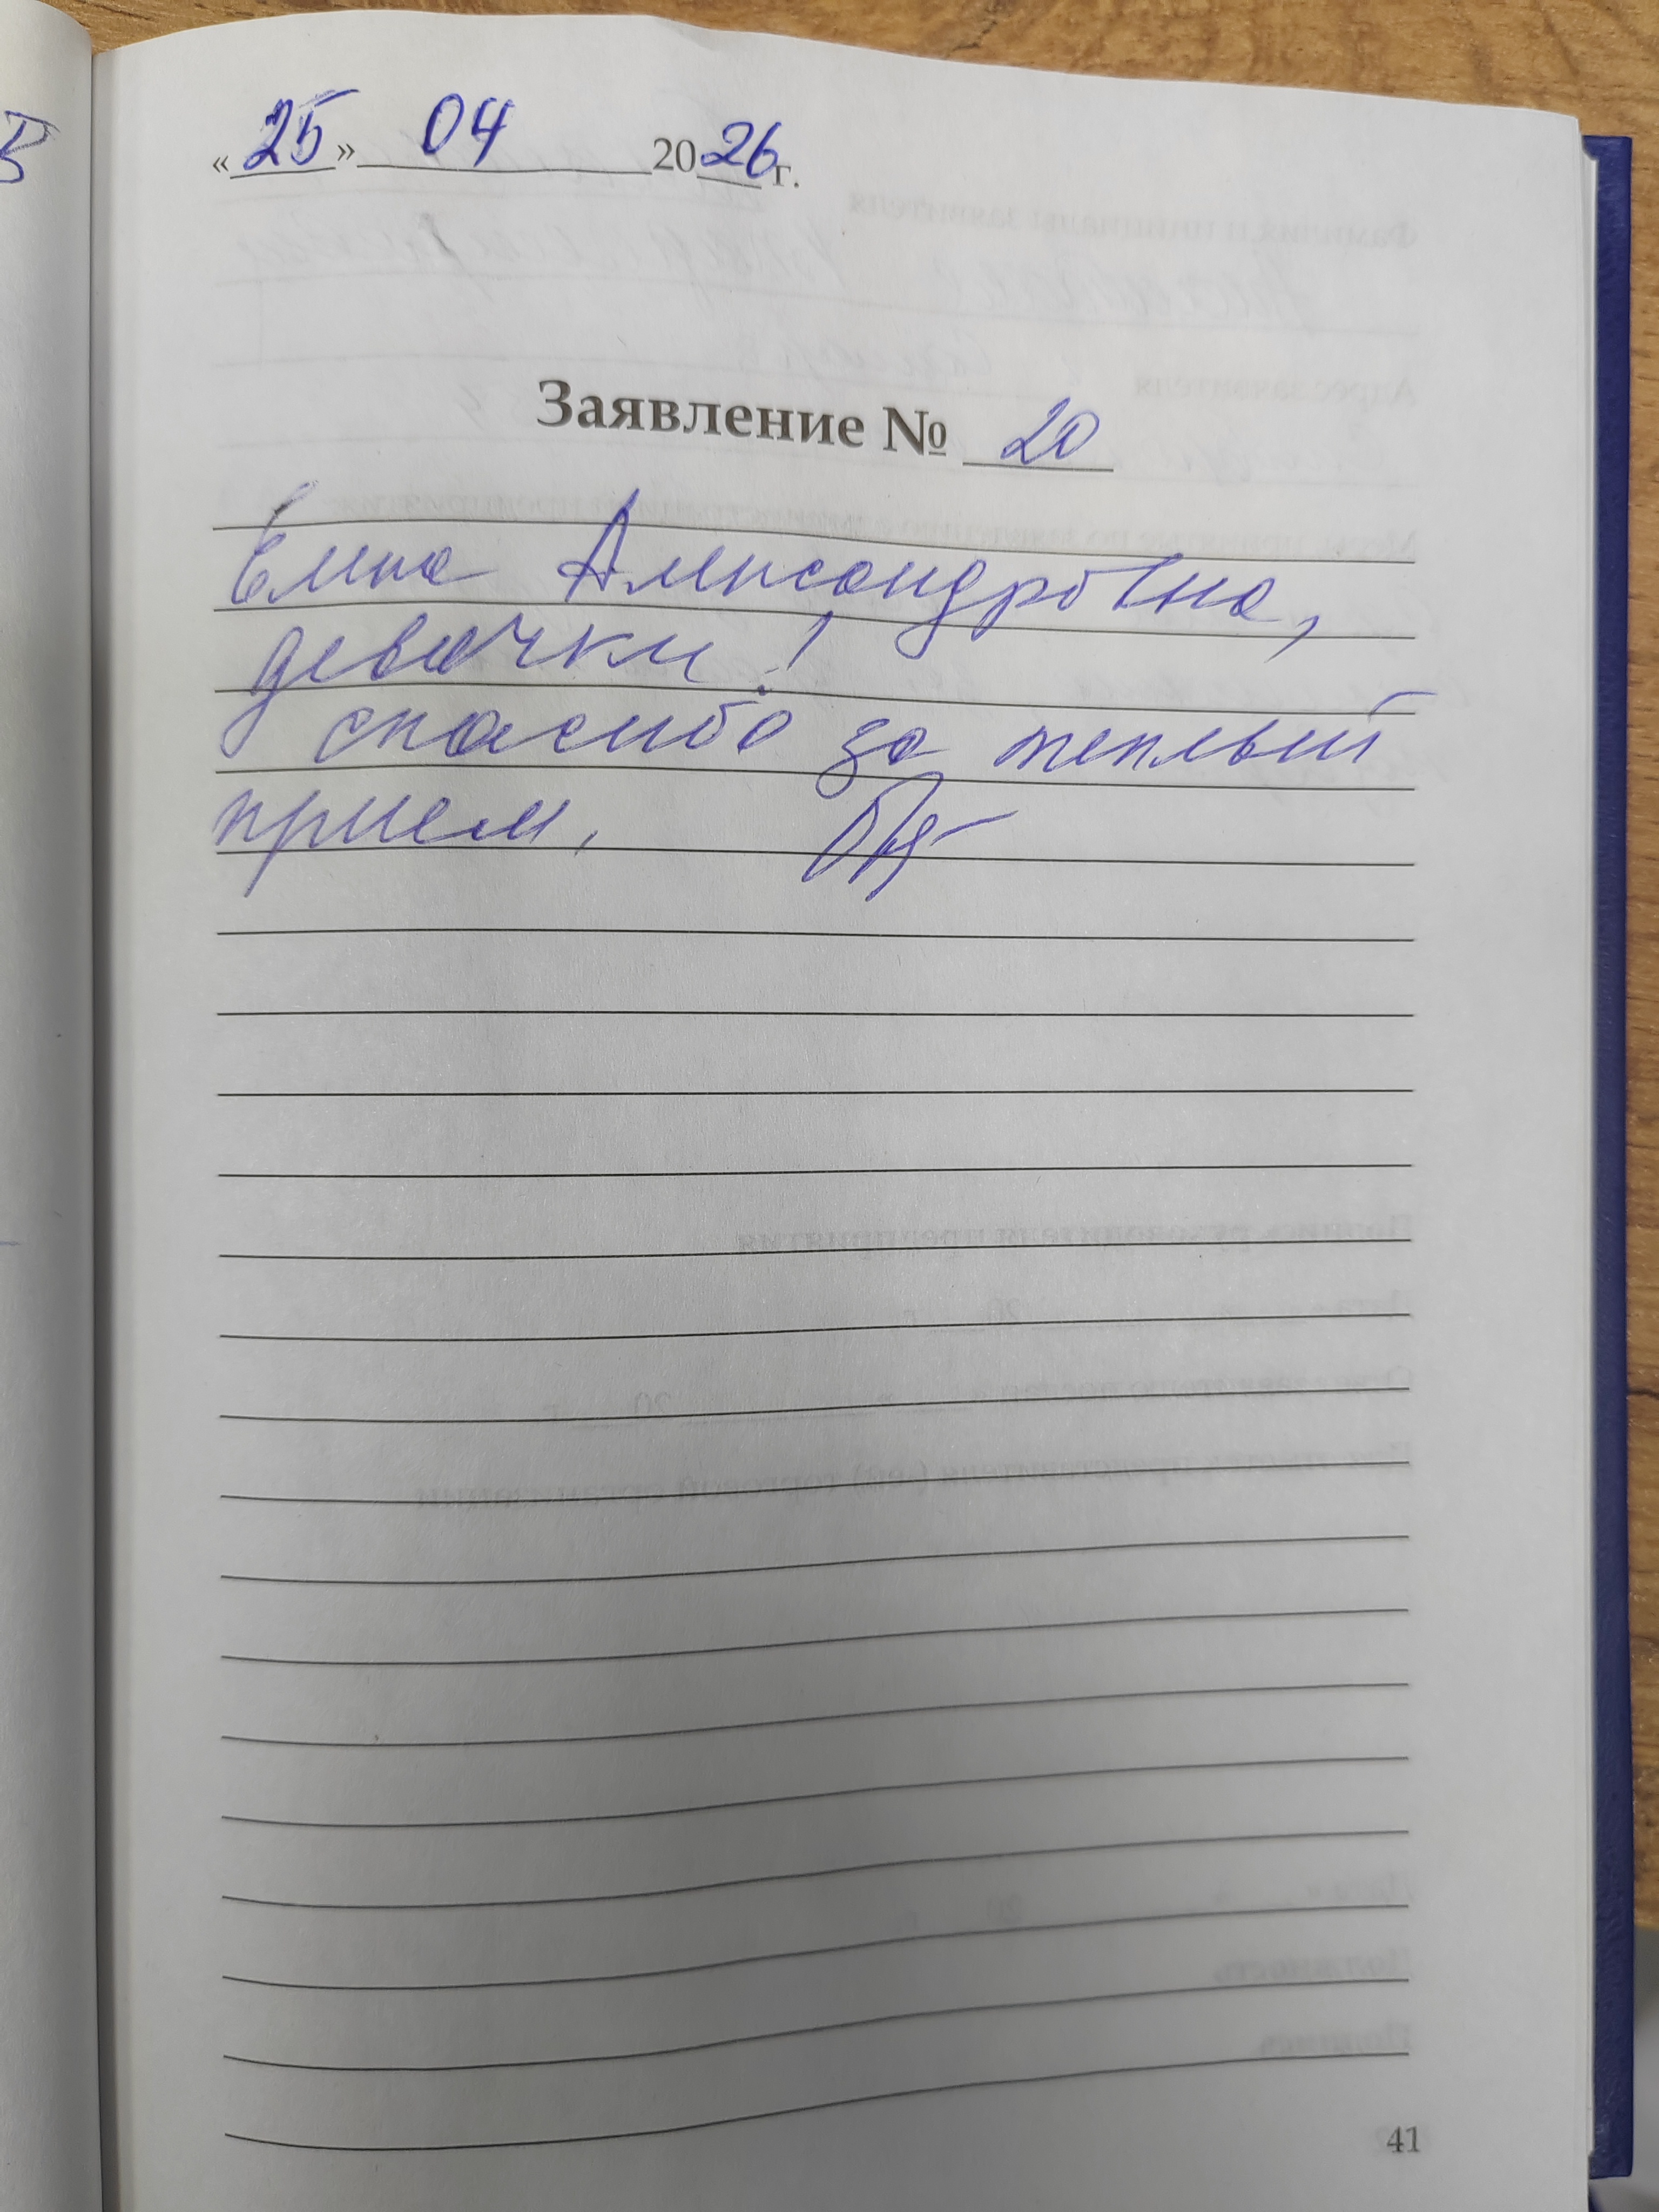 «25» 04 2026 г.
Заявление № 20
Елена Александровна,
девочки!
спасибо за теплый
прием.
41